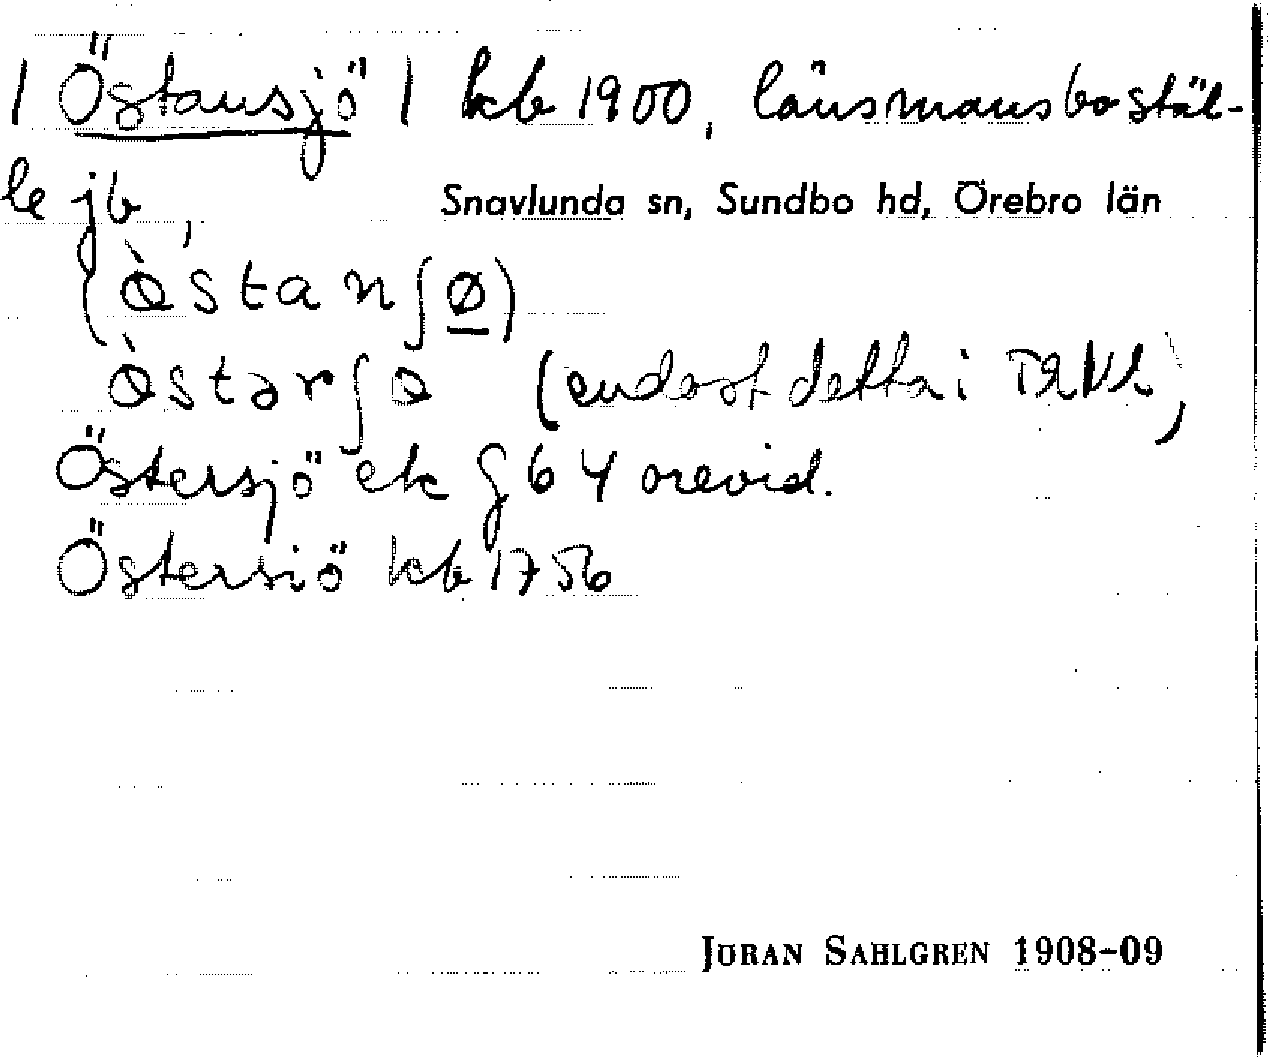 | Östansjö | kb 1900, länsmansbostäl-
le jb,
Snavlunda sn, Sundbo hd, Örebro län
(ɵ̀stanʃø)
ɵ̀stərʃɵ (endast detta i
Östersjö ek § 64 orevid.
Östersiö kb 1756
JÖRAN SAHLGREN 1908-09